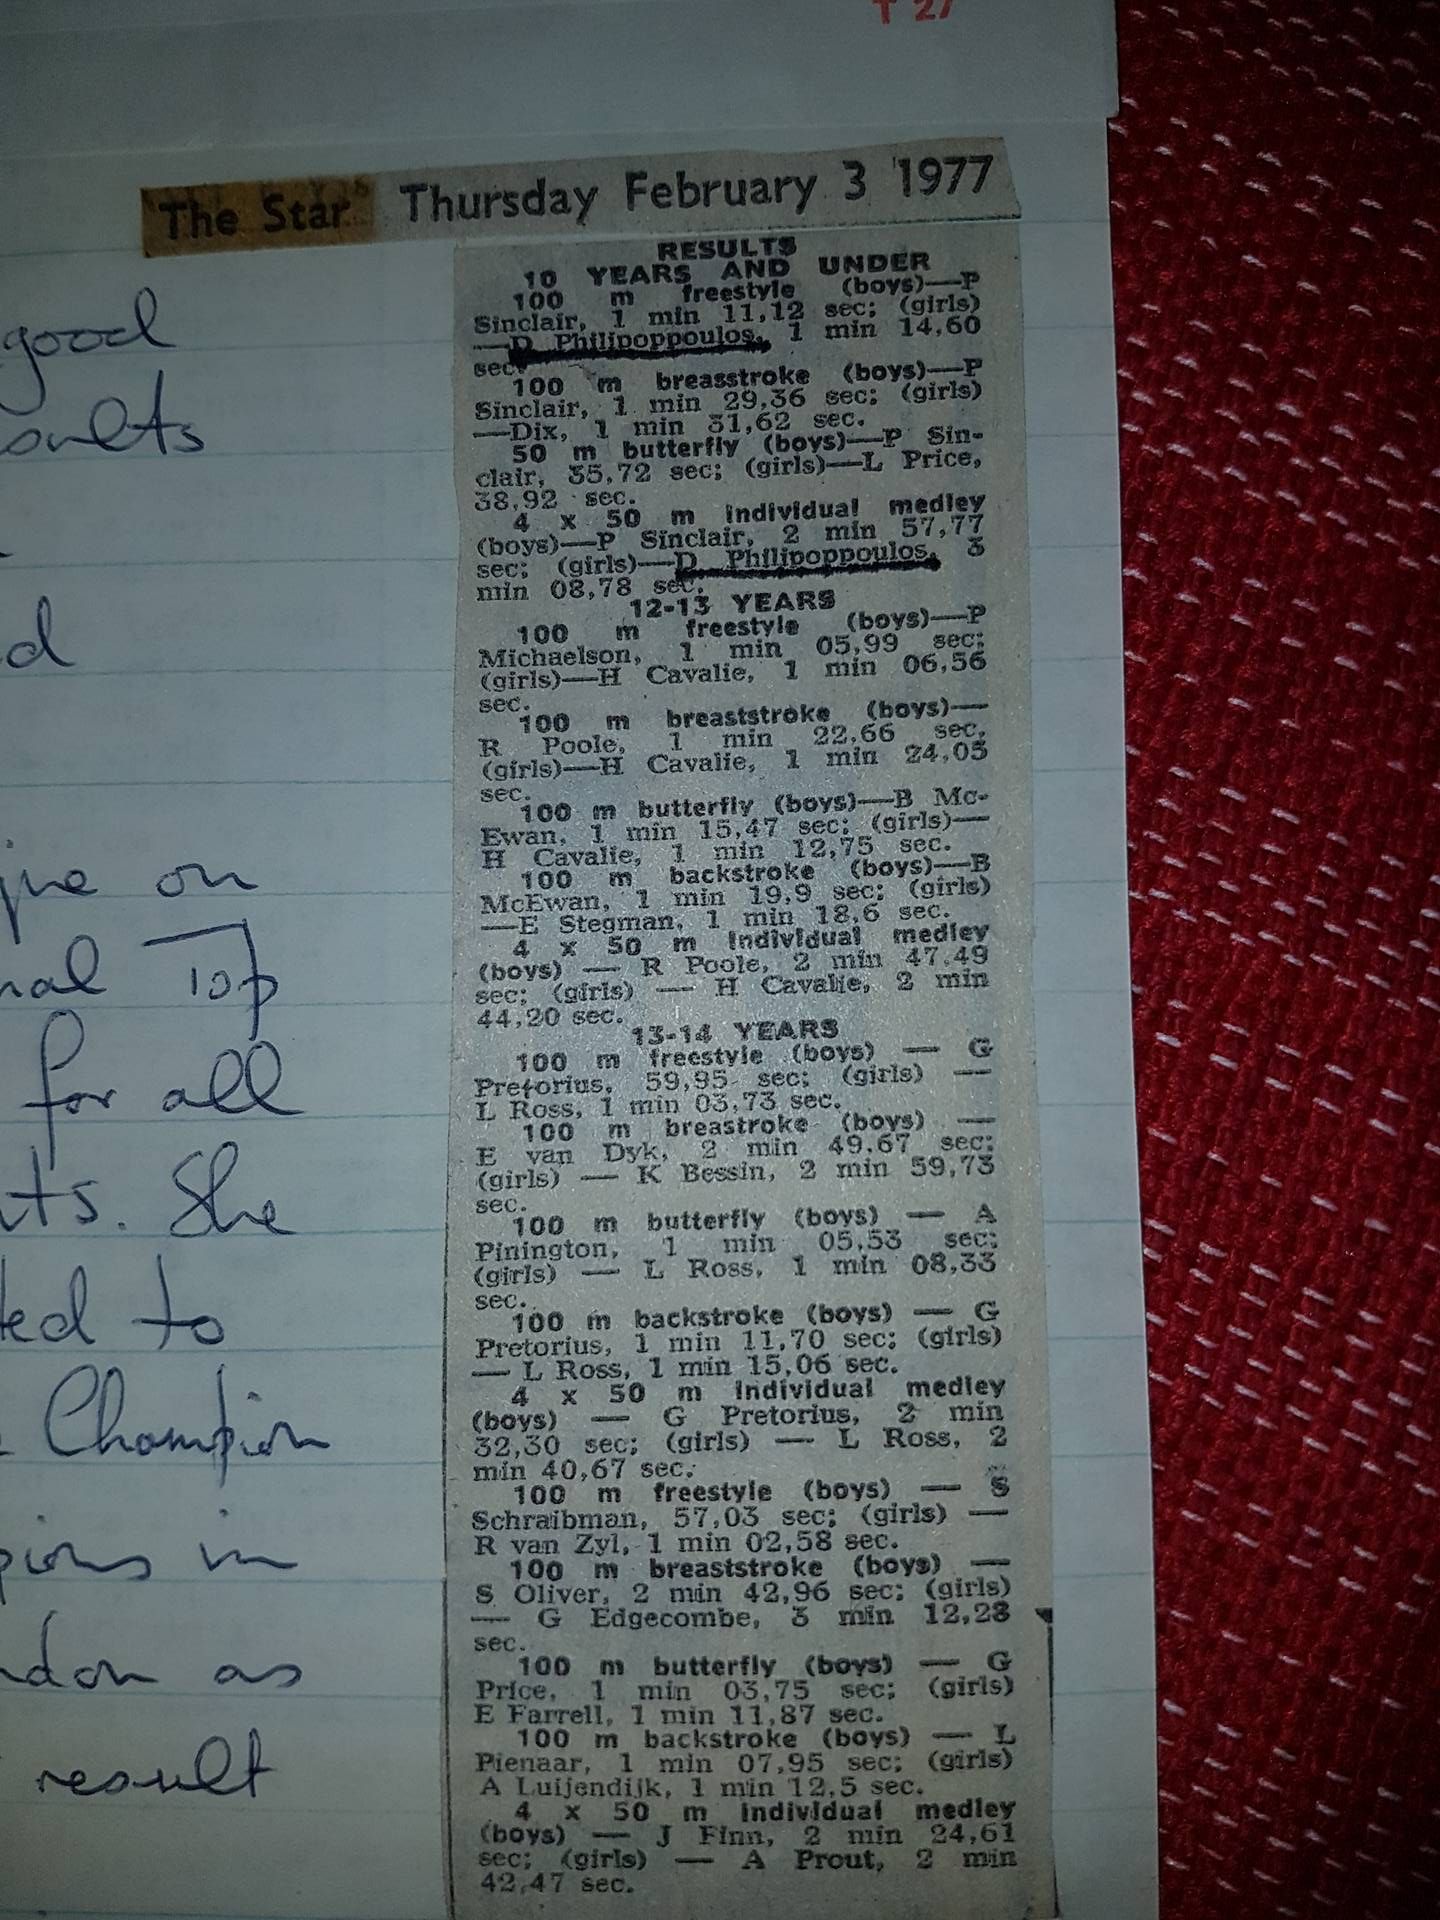 T 27
The Star Thursday February 3 1977
RESULTS
10 YEARS AND UNDER
100 m freestyle (boys)—P
Sinclair, 1 min 11,12 sec; (girls)
—D Philipoppoulos, 1 min 14,60
sec.
100 m breasstroke (boys)—P
Sinclair, 1 min 29,36 sec; (girls)
—Dix, 1 min 31,62 sec.
50 m butterfly (boys)—P Sin-
clair, 35,72 sec; (girls)—L Price,
38,92 sec.
4 x 50 m individual medley
(boys)—P Sinclair, 2 min 57,77
sec; (girls)—D Philipoppoulos, 3
min 08,78 sec.
12-13 YEARS
100 m freestyle (boys)—P
Michaelson, 1 min 05,99 sec;
(girls)—H Cavalie, 1 min 06,56
sec.
100 m breaststroke (boys)—
R Poole, 1 min 22,66 sec,
(girls)—H Cavalie, 1 min 24,05
sec.
100 m butterfly (boys)—B Mc-
Ewan, 1 min 15,47 sec; (girls)—
H Cavalie, 1 min 12,75 sec.
100 m backstroke (boys)—B
McEwan, 1 min 19,9 sec; (girls)
—E Stegman, 1 min 18,6 sec.
4 x 50 m individual medley
(boys) — R Poole, 2 min 47.49
sec; (girls) — H Cavalie, 2 min
44,20 sec.
13-14 YEARS
100 m freestyle (boys) — G
Pretorius, 59,95 sec; (girls) —
L Ross, 1 min 03,73 sec.
100 m breastroke (boys) —
E van Dyk, 2 min 49,67 sec;
(girls) — K Bessin, 2 min 59,73
sec.
100 m butterfly (boys) — A
Pinington, 1 min 05,53 sec;
(girls) — L Ross, 1 min 08,33
sec.
100 m backstroke (boys) — G
Pretorius, 1 min 11,70 sec; (girls)
— L Ross, 1 min 15,06 sec.
4 x 50 m individual medley
(boys) — G Pretorius, 2 min
32,30 sec; (girls) — L Ross, 2
min 40,67 sec.
100 m freestyle (boys) — S
Schraibman, 57,03 sec; (girls) —
R van Zyl, 1 min 02,58 sec.
100 m breaststroke (boys) —
S Oliver, 2 min 42,96 sec; (girls)
— G Edgecombe, 3 min 12,28
sec.
100 m butterfly (boys) — G
Price, 1 min 03,75 sec; (girls)
E Farrell, 1 min 11,87 sec.
100 m backstroke (boys) — L
Pienaar, 1 min 07,95 sec; (girls)
A Luijendijk, 1 min 12,5 sec.
4 x 50 m individual medley
(boys) — J Finn, 2 min 24,61
sec; (girls) — A Prout, 2 min
42,47 sec.
good
on
Top
for all
She
to
Champion
in
as
result